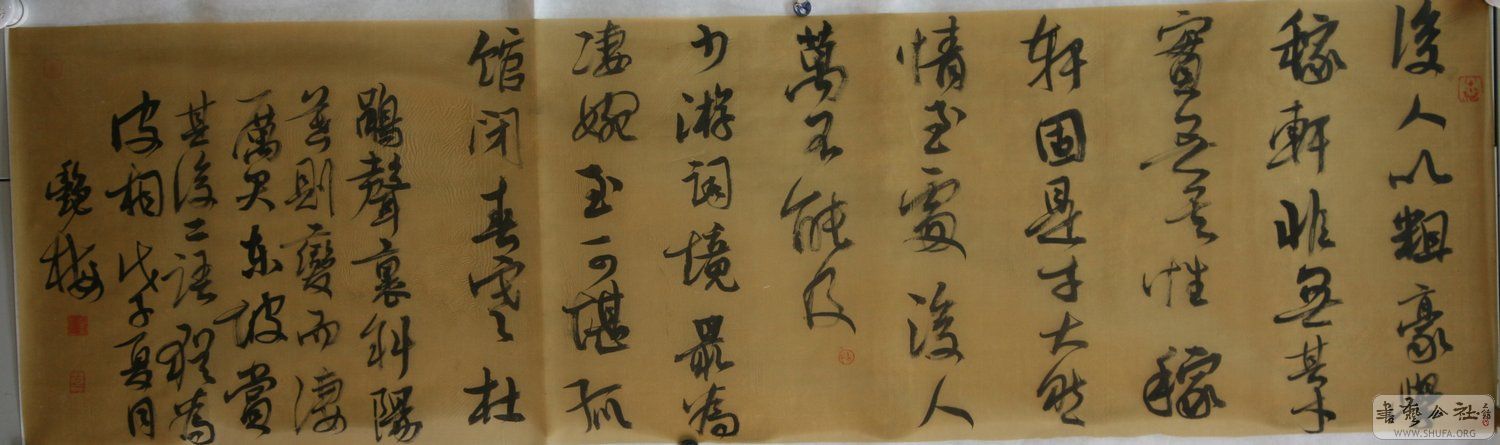 後人以粗豪學
稼軒非無其才
實無其性稼
軒固是才大然
情至處後人
萬不能及
少游詞境最為
淒婉至可堪孤
館閉春寒杜
鵑聲裏斜陽
暮則變而淒
厲矣東坡賞
其後二語猶為
皮相戊子夏月
艷梅
書藝公社
WWW.SHUFA.ORG